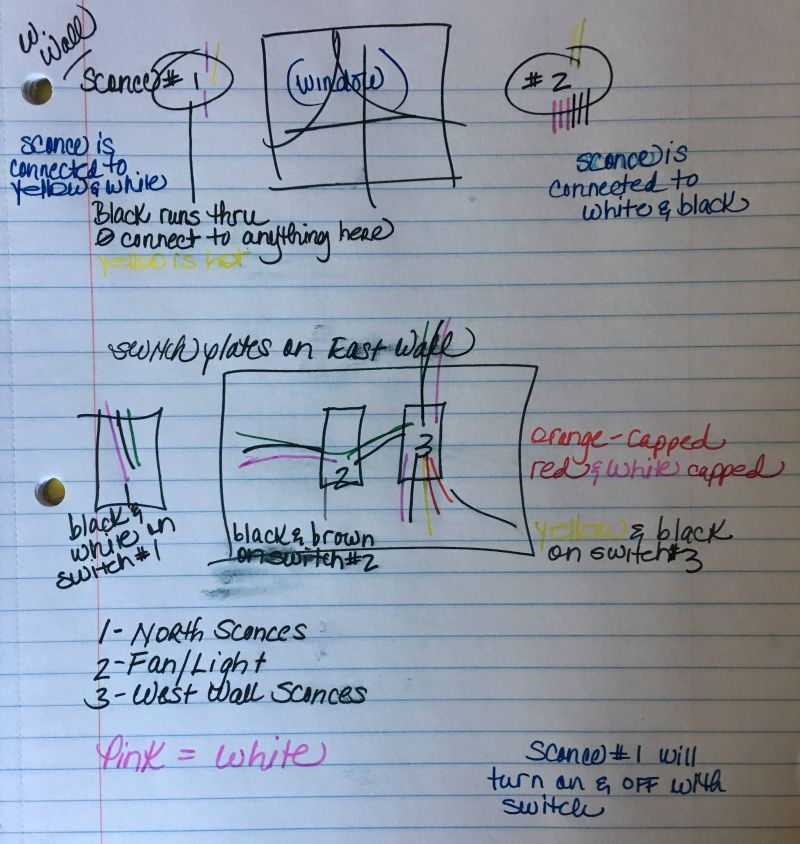 W. Wall
Sconce # 1
(window)
# 2
sconce is
connected to
yellow & white
sconce is
connected to
white & black
Black runs thru
Ø connect to anything here
yellow is hot
switch plates on East Wall
1
2
3
orange-capped
red & white capped
black &
white on
switch #1
black & brown
on switch #2
yellow & black
on switch #3
1- North Sconces
2- Fan/Light
3- West Wall Sconces
Pink = White
Sconce #1 will
turn on & OFF with
switch